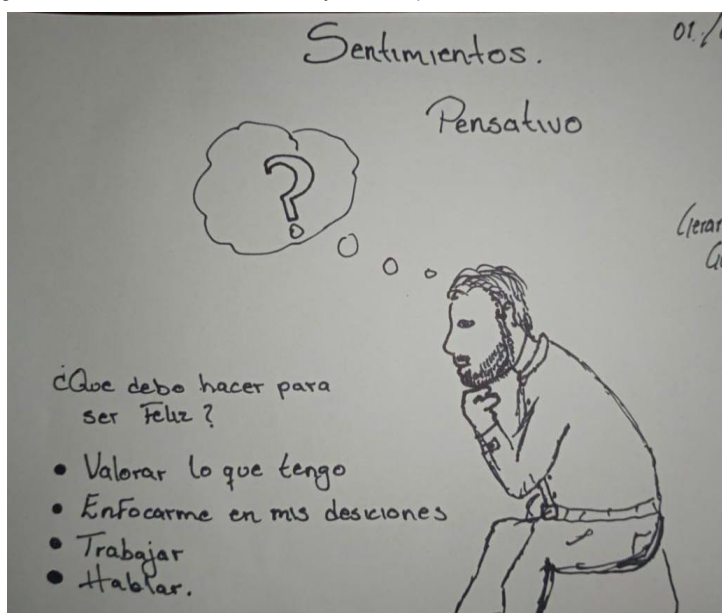 Sentimientos.
01./
Pensativo
?
¿Que debo hacer para
ser Feliz?
• Valorar lo que tengo
• Enfocarme en mis desiciones
• Trabajar
• Hablar.